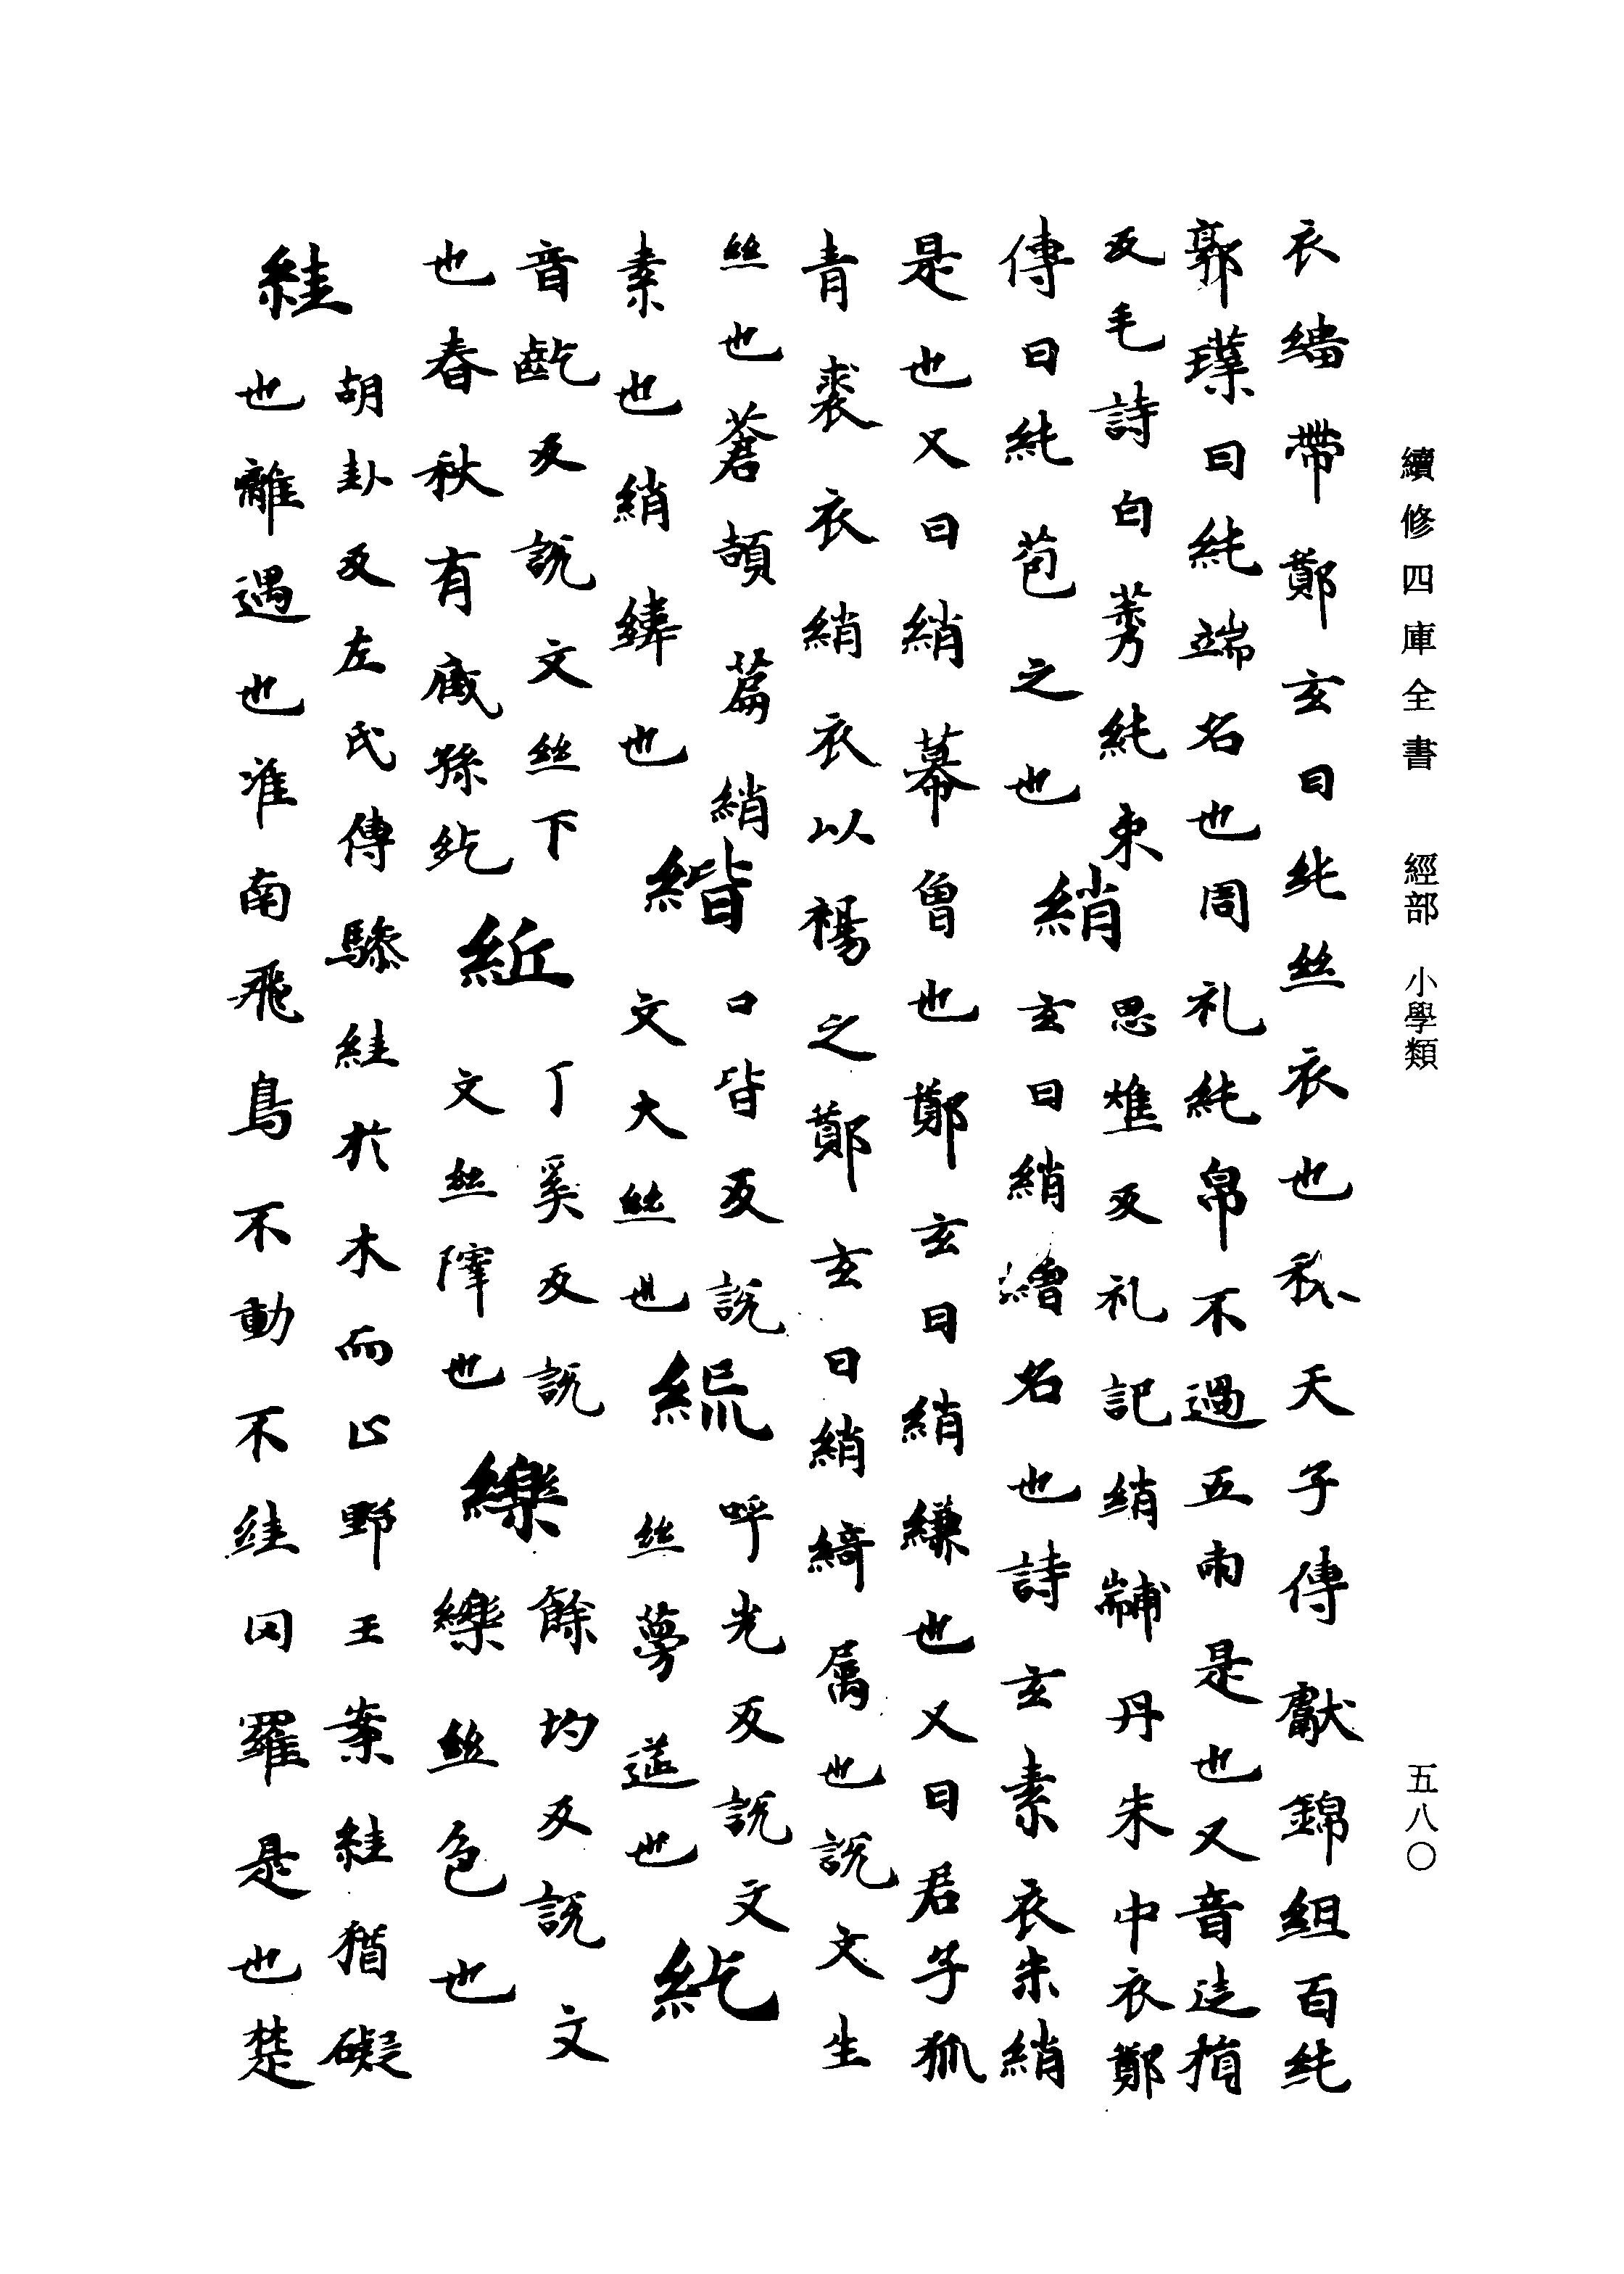 續修四庫全書　經部　小學類　五八〇
衣繒帶鄭玄曰純絲衣也穆天子傳獻錦組百純
郭璞曰純端名也周礼純帛不過五兩是也又音徒損
反毛詩白茅純束
傳曰純苞之也
綃
思燋反礼記綃黼丹朱中衣鄭
玄曰綃繒名也詩云素衣朱綃
是也又曰綃幕魯也鄭玄曰綃縑也又曰君子狐
青裘衣綃衣以裼之鄭玄曰綃綺属也說文生
絲也蒼頡篇綃
素也綃緯也
緒
口皆反說
文大絲也
䋄
呼光反說文
絲蔓莚也
紇
音齕反說文絲下
也春秋有臧孫紇
紙
丁奚反說
文絲滓也
纅
餘均反說文
纅絲色也
絓
胡卦反左氏傳驂絓於木而止野王案絓猶礙
也離遇也淮南飛鳥不動不絓网羅是也楚